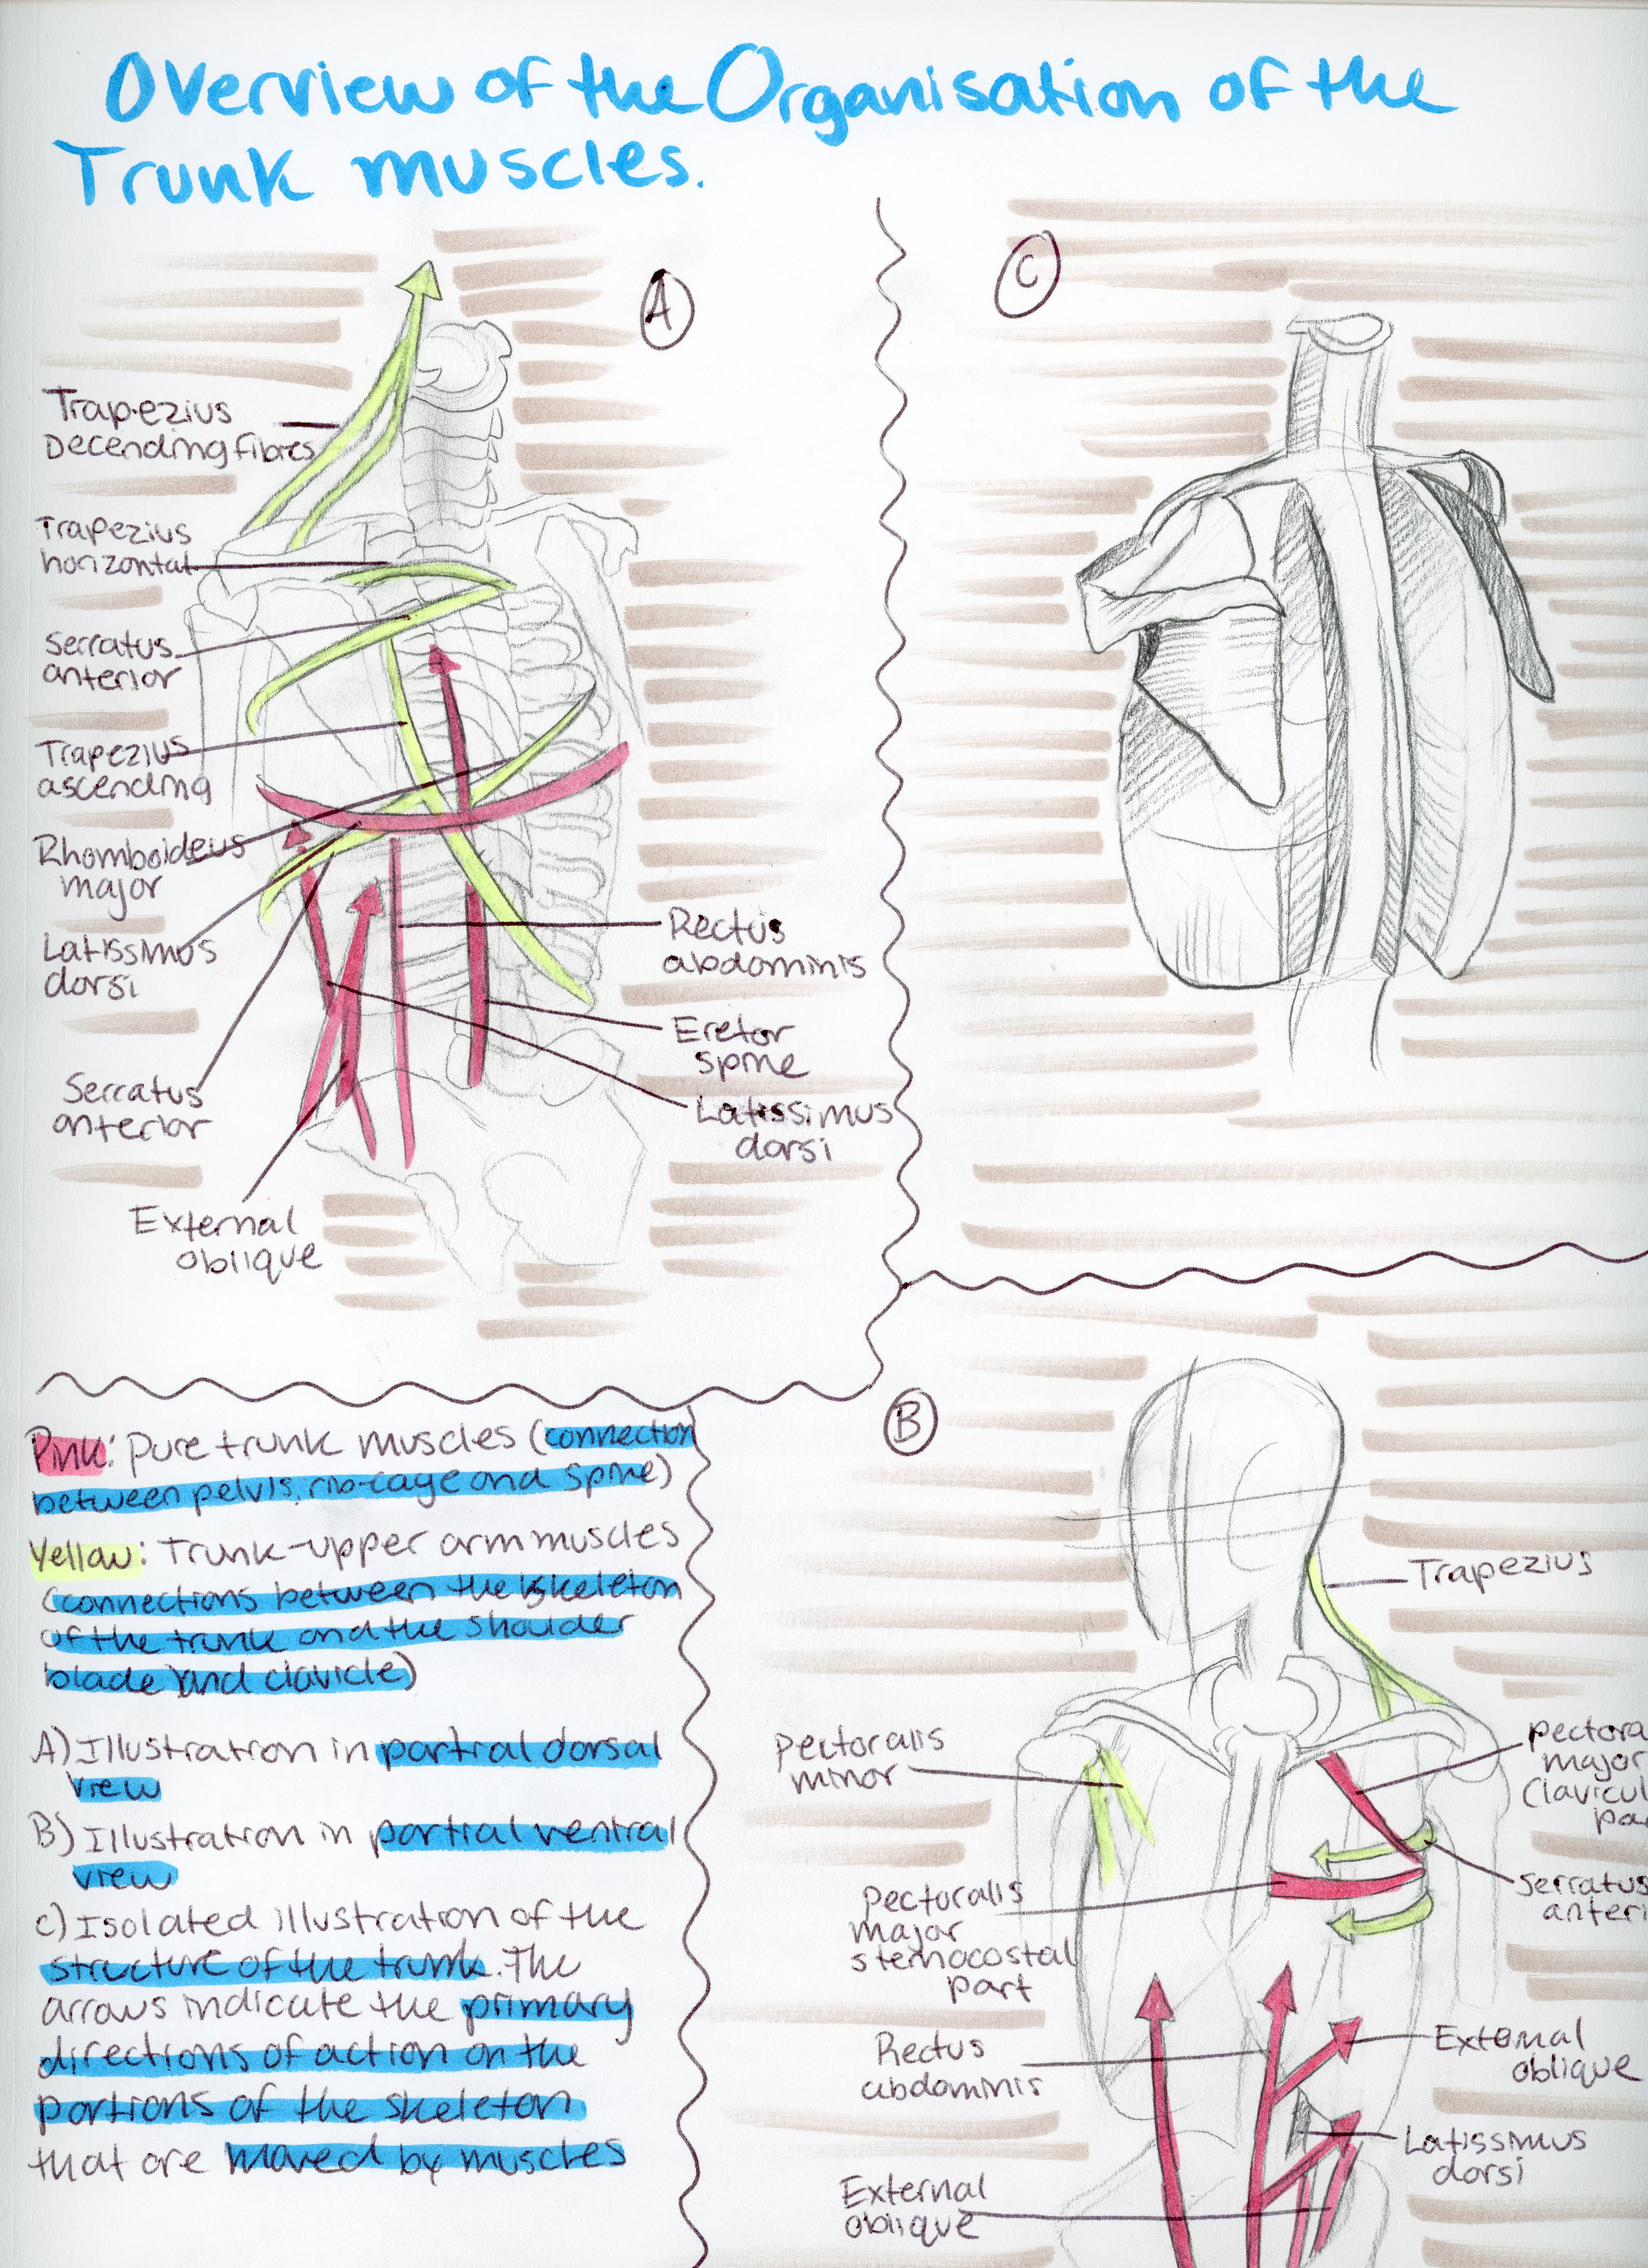 Overview of the Organisation of the
Trunk muscles.
A
Trapezius
Decending fibres
Trapezius
horizontal
Serratus
anterior
Trapezius
ascending
Rhomboideus
major
Latissimus
dorsi
Serratus
anterior
External
oblique
Rectus
abdominis
Eretor
spine
Latissimus
dorsi
C
Pink: Pure trunk muscles (connection
between pelvis, rib-cage and spine)
Yellow: Trunk-upper arm muscles
(connections between the skeleton
of the trunk and the shoulder
blade and clavicle)
A) Illustration in partial dorsal
view
B) Illustration in partial ventral
view
C) Isolated illustration of the
structure of the trunk. The
arrows indicate the primary
directions of action on the
portions of the skeleton
that are moved by muscles
B
Trapezius
Pectoralis
minor
Pectora
major
(Clavicul
pa
Serratus
anteri
Pectoralis
major
sternocostal
part
Rectus
abdominis
External
oblique
Latissmus
dorsi
External
oblique